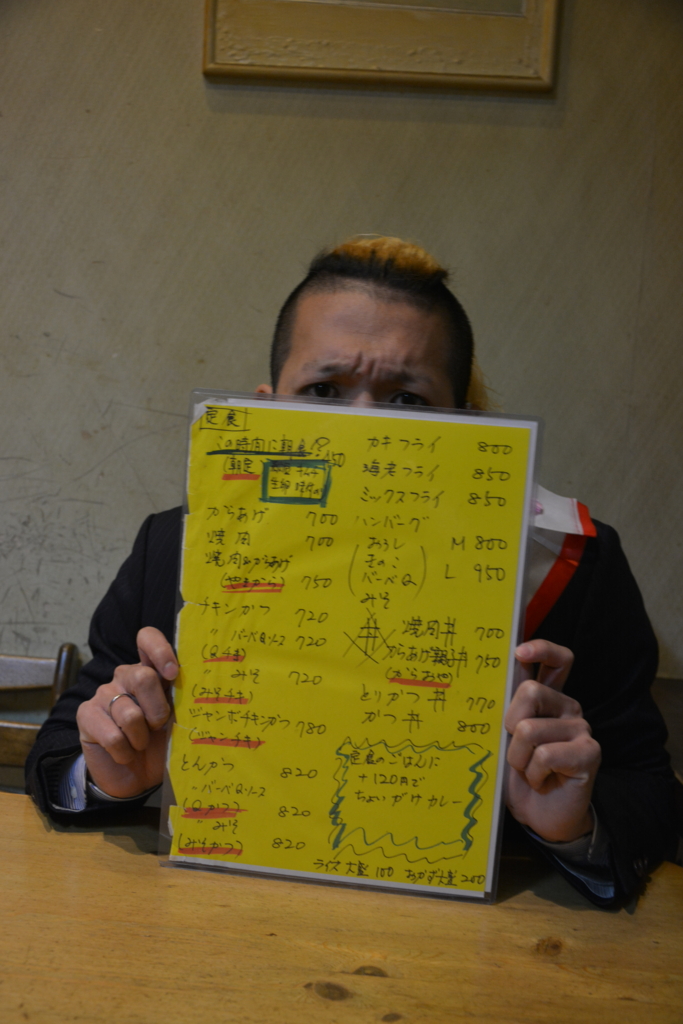 定食
この時間に朝食!?
(朝定 450
からあげ 700
焼肉 700
焼肉&からあげ
(やきから) 750
チキンかつ 720
〃 バーベQソース 720
(Qチキ)
〃 みそ 720
(みそチキ)
ジャンボチキンかつ 780
(ジャンチキ)
とんかつ 820
〃バーベQソース
(Qかつ) 820
〃 みそ
(みそかつ) 820
カキフライ 800
海老フライ 850
ミックスフライ 850
ハンバーグ
おろし M 800
きのこ
バーベQ L 950
みそ
丼 焼肉丼 700
からあげ親子丼 750
(からおや)
とりかつ丼 770
かつ丼 800
定食のごはんに
+120円で
ちょいがけカレー
ライス大盛100 おかず大盛200